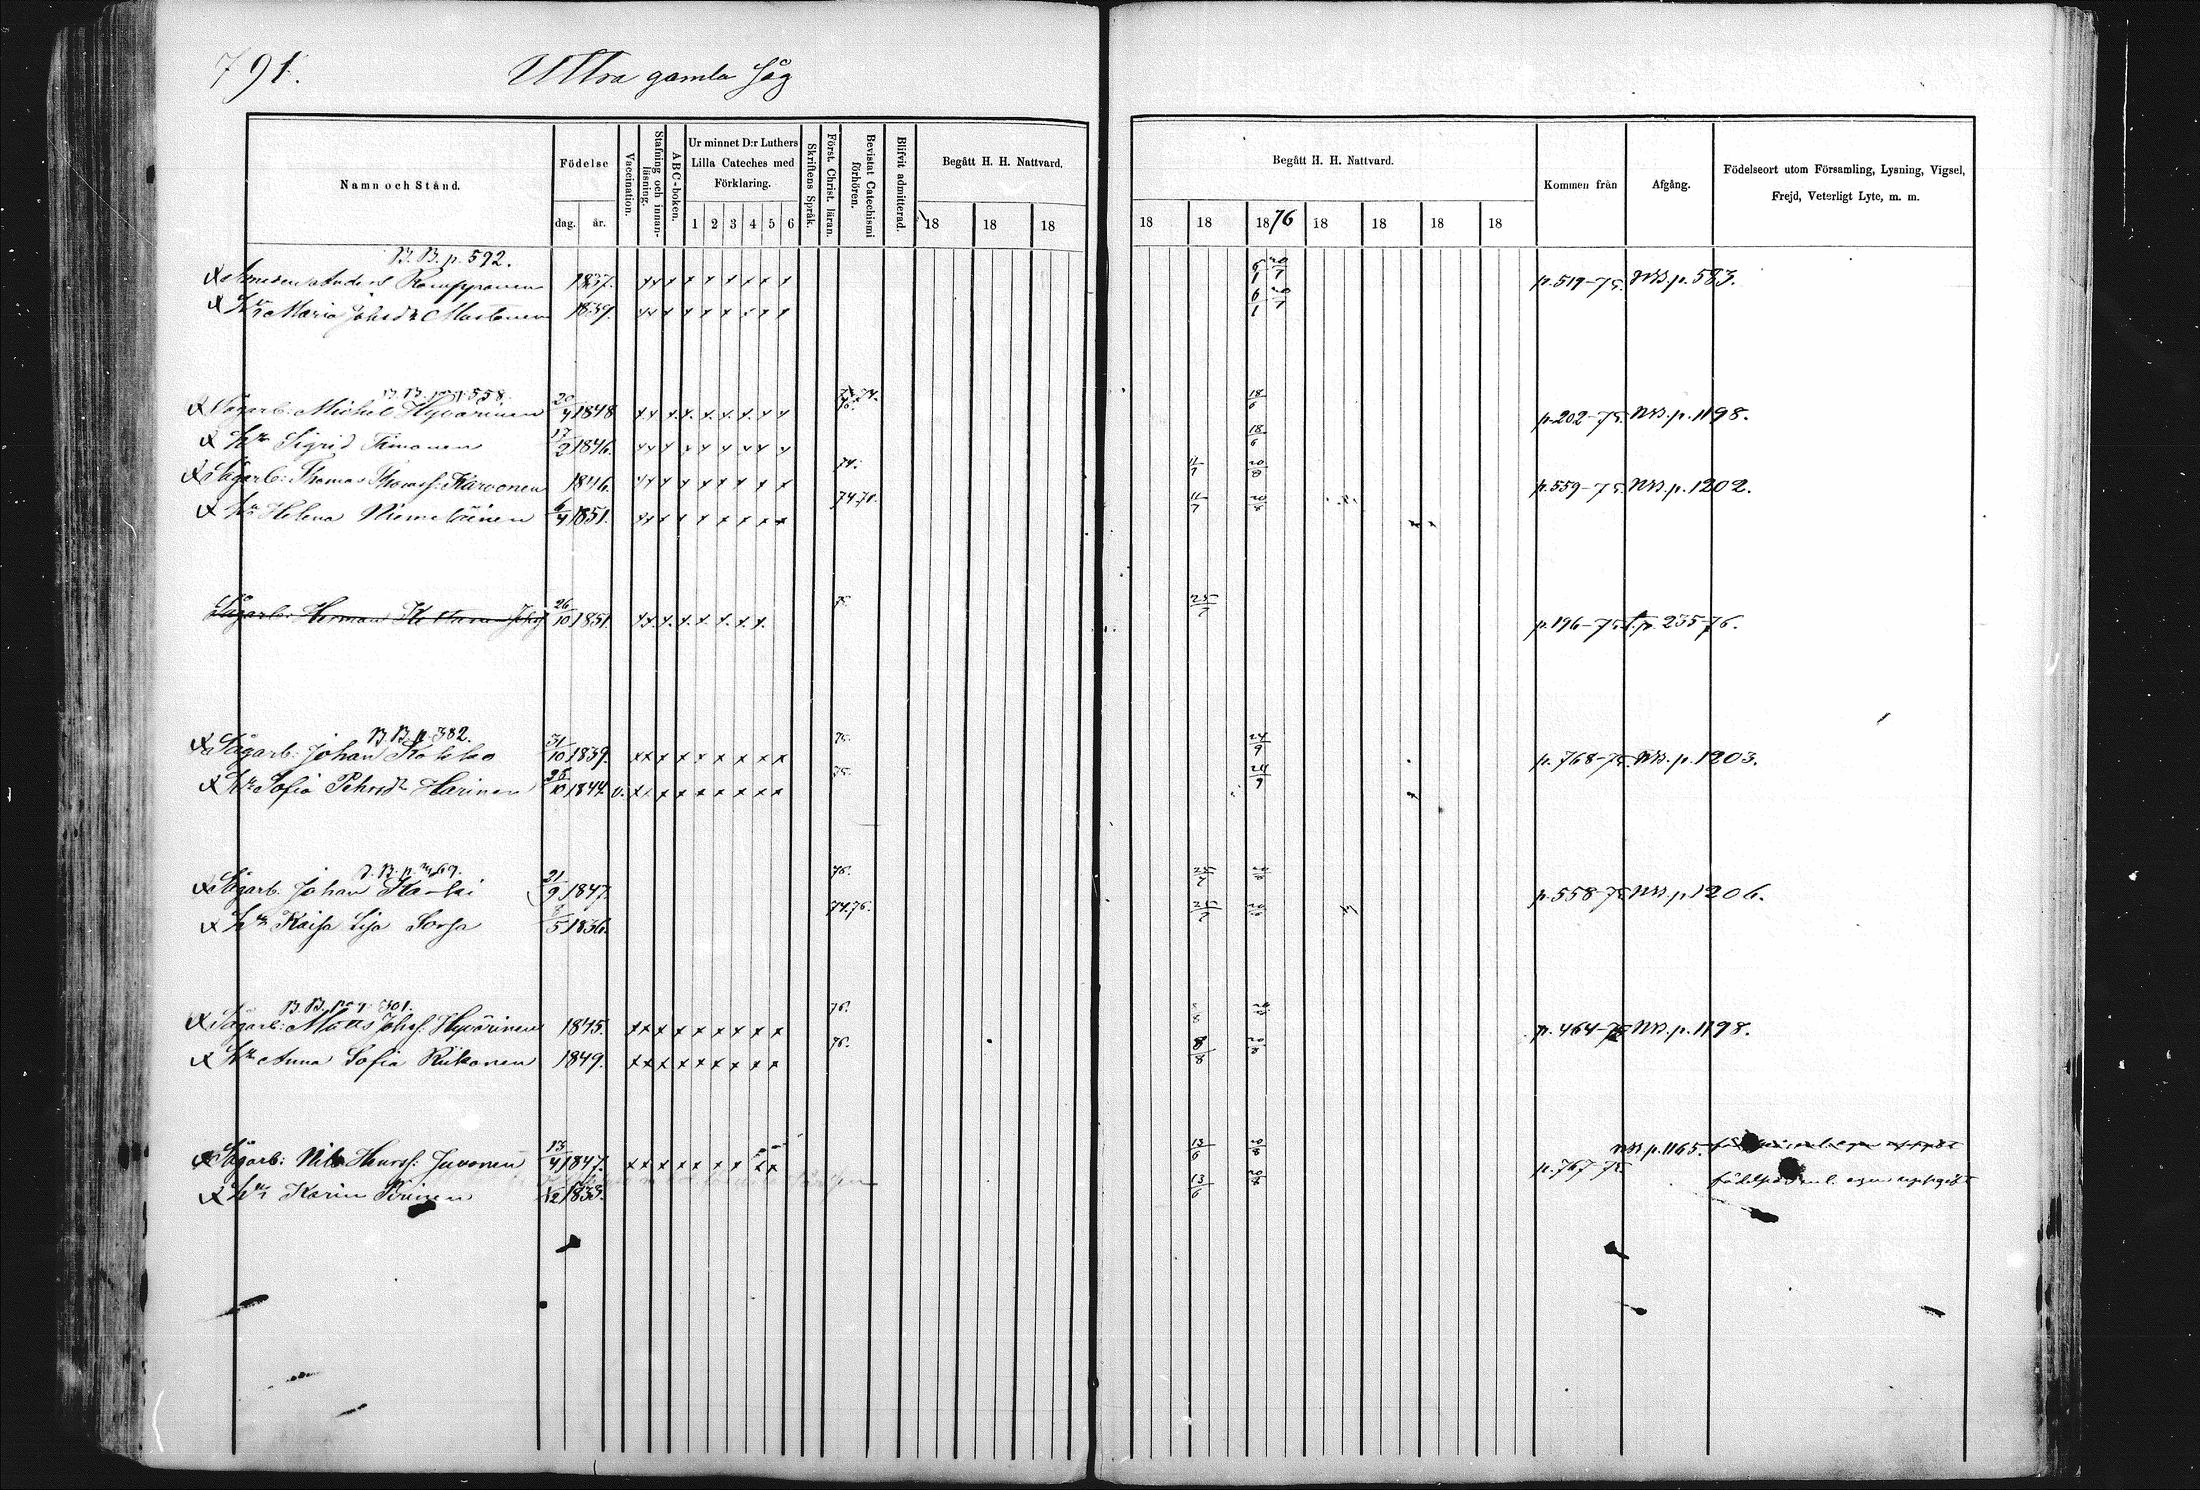 791.
Uttra gamla Såg
Namn och Stånd.
Födelse
dag. år.
Vaccination.
Stafning och innan-läsning.
ABC-boken.
Ur minnet D:r Luthers
Lilla Cateches med
Förklaring.
1 2 3 4 5 6
Skriftens Språk.
Först. Christ. läran.
Bevistat Catechismi förhören.
Blifvit admitterad.
Begått H. H. Nattvard.
18 18 18
Begått H. H. Nattvard.
18 18 1876 18 18 18 18
Kommen från
Afgång.
Födelseort utom Församling, Lysning, Vigsel,
Frejd, Veterligt Lyte, m. m.
B. B. p. 592.
Anders Romppanen 1837. x x x x x x x x x 6/1 20/7 p. 519-75. NB. p. 583.
Hr Maria Johsdr Mustonen 1839. x x x x x x x x x 6/1 20/7
558.
Sågarb: Michel Hyvärinen 20/4 1848 x x x x x x x x x 18/6 p. 202-75. NB. p. 1198.
Hr Sigrid Timonen 17/2 1846. x x x x x x x x x 18/6
Sågarb: Thomas Thomsf: Karvonen 1846. x x x x x x x x x 74. 11/7 20/8 p. 559-75. NB. p. 1202.
Hr Helena Niemeläinen 6/4 1851. x x x x x x x x x 11/7 20/8
Sågarb: Herman 26/10 1851. x x x x x x x x 75. 25/7 p. 196-75. p. 235-76.
B. B. p. 382.
Sågarb. Johan Kokko 31/10 1839. x x x x x x x x x 75. 24/9 p. 768-75. NB. p. 1203.
Hr Sofia Pehrsdr Harinen 26/10 1844. v. x x x x x x x x x 75. 24/9
Sågarb. Johan 21/9 1847. 76. 25/7 p. 558-75 NB. p. 1206.
Hr Kaisa Lisa Sorsa 1836. 74.76. 25/7
B. B. 301.
Sågarb: Matts Johsf: Hyvärinen 1845. x x x x x x x x x 76. p. 464-75 NB. p. 1198.
Hr Anna Sofia Riikonen 1849. x x x x x x x x x 76. 8/8 20/8
Sågarb: Nils Hansf: Juvonen 13/4 1847. x x x x x x x x x 13/6 20/8 p. 767-75. NB p. 1165.
Hr Karin Pirinen 1833. 13/6 20/8 egen uppgift